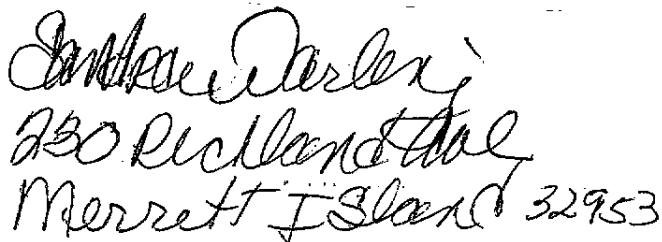 Sandra Darling
230 Richland Ave
Merritt Island 32953